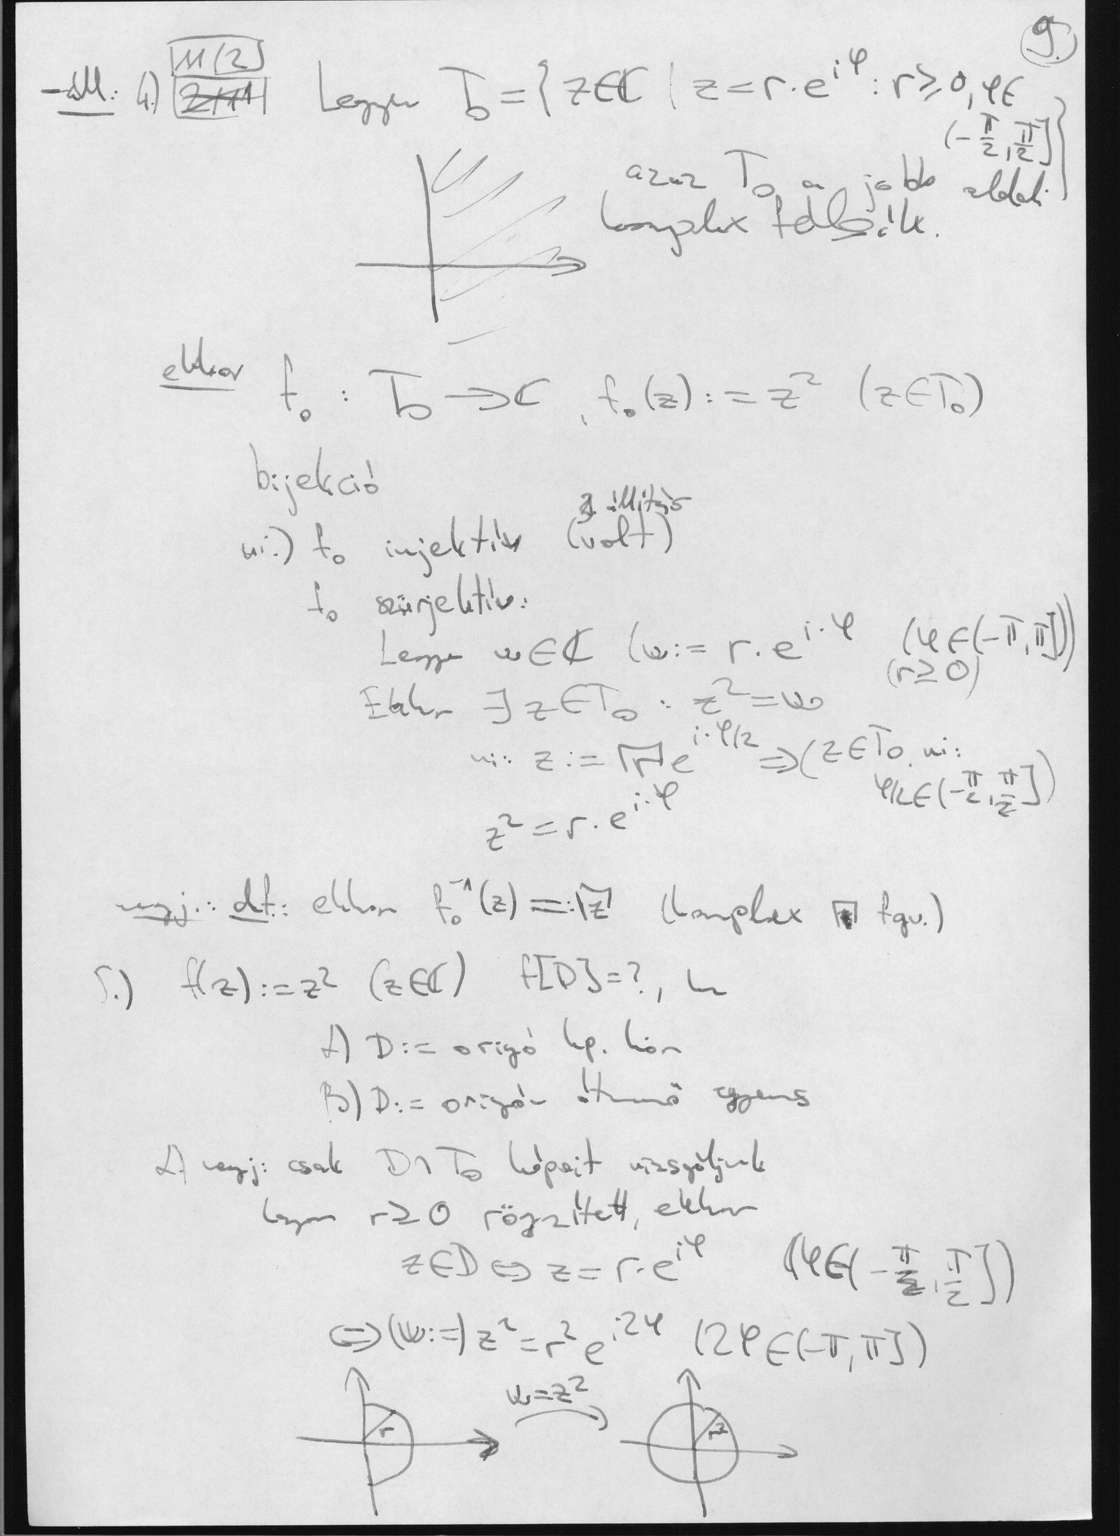 9.
-áll.: 4.) 11/2
Legyen T₀ = { z∈ℂ | z = r·e^{iφ} : r ≥ 0, φ∈
(-π/2, π/2] }
azaz T₀ a jobb oldali
komplex félsík.
ekkor f₀ : T₀ → ℂ , f₀(z) := z² (z∈T₀)
bijekció
ui.) f₀ injektív (3. állítás volt)
f₀ szürjektív:
Legyen w∈ℂ (w := r·e^{i·φ} (φ∈(-π, π]))
(r ≥ 0)
Ekkor ∃ z∈T₀ : z² = w
ui: z := √r e^{i·φ/2} ⇒ (z∈T₀ ui:
φ/2∈(-π/2, π/2])
z² = r·e^{i·φ}
megj.: df.: ekkor f₀⁻¹(z) =: √z (komplex √ fgv.)
5.) f(z) := z² (z∈ℂ) f[D] = ?, ha
A) D := origó kp. kör
B) D := origón átmenő egyenes
A) megj: csak D∩T₀ képeit vizsgáljuk
legyen r ≥ 0 rögzített, ekkor
z∈D ⇔ z = r·e^{iφ} (φ∈(-π/2, π/2])
⇔ (w:=) z² = r² e^{i2φ} (2φ∈(-π, π])
w = z²
r r²